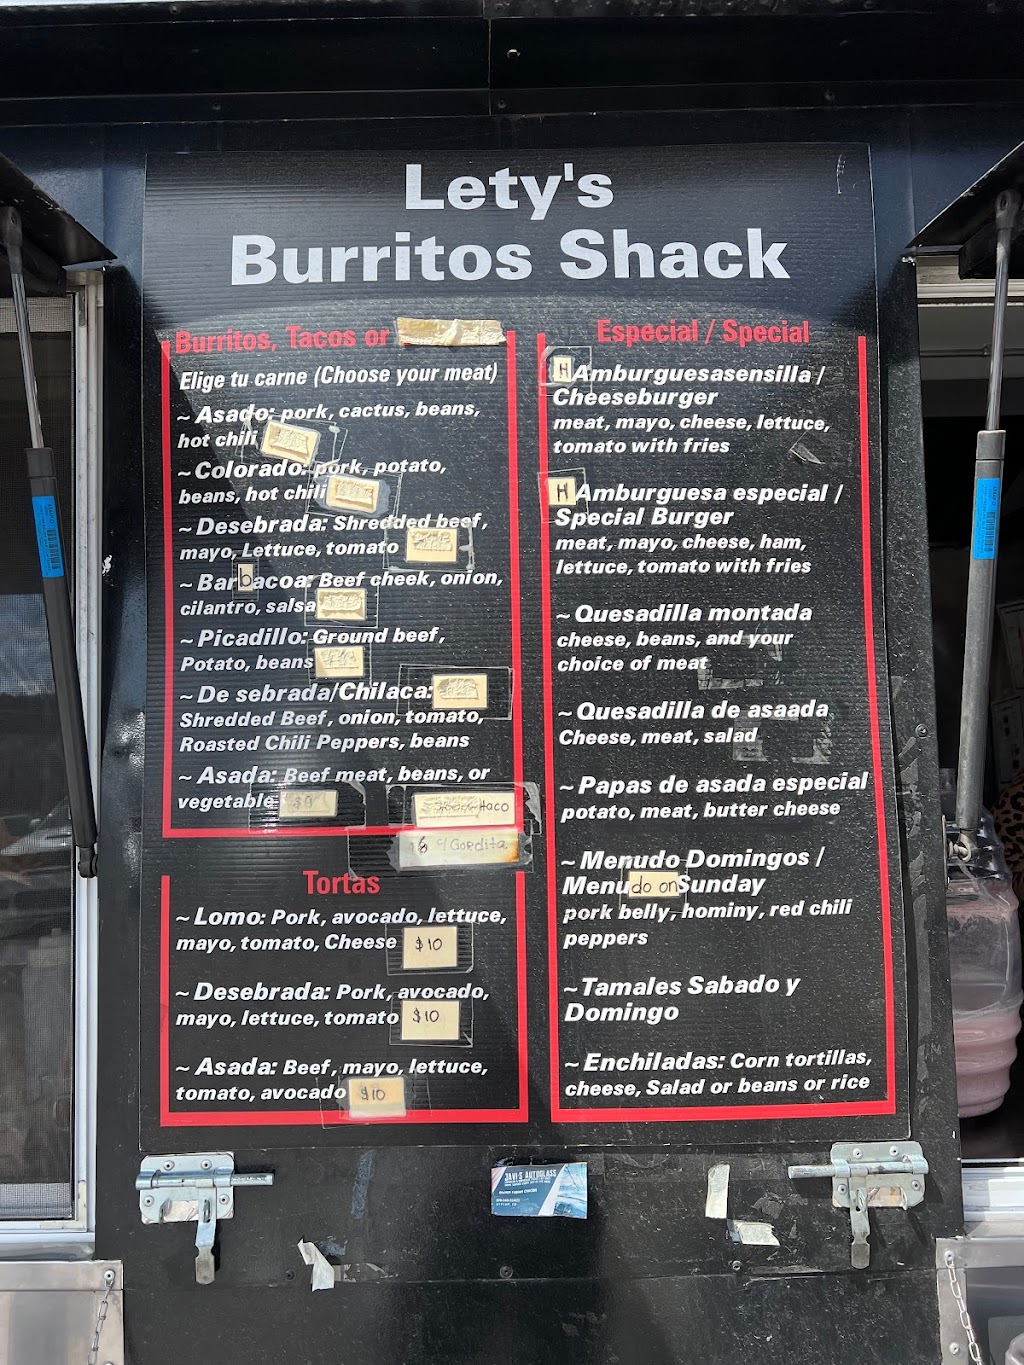 Lety's
Burritos Shack
Burritos, Tacos or
Elige tu carne (Choose your meat)
~ Asado: pork, cactus, beans,
hot chili
~ Colorado: pork, potato,
beans, hot chili
~ Desebrada: Shredded beef,
mayo, Lettuce, tomato
~ Barbacoa: Beef cheek, onion,
cilantro, salsa
~ Picadillo: Ground beef,
Potato, beans
~ De sebrada/Chilaca:
Shredded Beef, onion, tomato,
Roasted Chili Peppers, beans
~ Asada: Beef meat, beans, or
vegetable $9
Gordita
Tortas
~ Lomo: Pork, avocado, lettuce,
mayo, tomato, Cheese $10
~ Desebrada: Pork, avocado,
mayo, lettuce, tomato $10
~ Asada: Beef, mayo, lettuce,
tomato, avocado $10
Especial / Special
HAmburguesasensilla /
Cheeseburger
meat, mayo, cheese, lettuce,
tomato with fries
HAmburguesa especial /
Special Burger
meat, mayo, cheese, ham,
lettuce, tomato with fries
~ Quesadilla montada
cheese, beans, and your
choice of meat
~ Quesadilla de asaada
Cheese, meat, salad
~ Papas de asada especial
potato, meat, butter cheese
~ Menudo Domingos /
Menudo on Sunday
pork belly, hominy, red chili
peppers
~ Tamales Sabado y
Domingo
~ Enchiladas: Corn tortillas,
cheese, Salad or beans or rice
JAVI'S AUTOGLASS